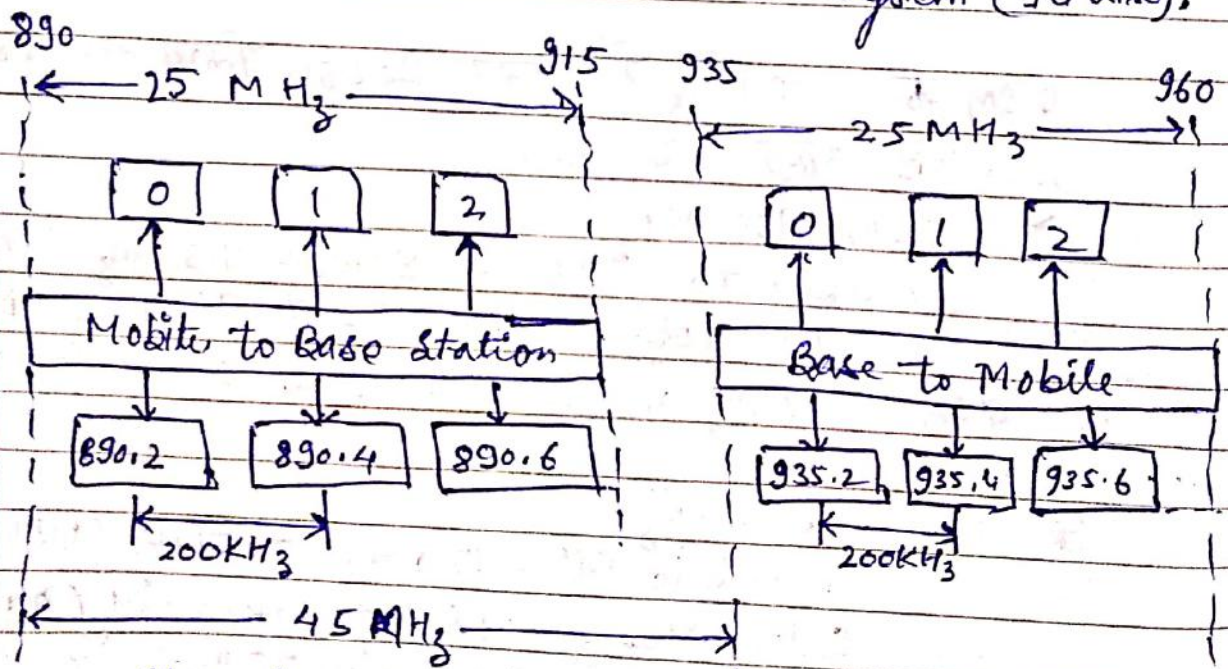 890 915 935 960
25 MHz 25 MHz
0 1 2 0 1 2
Mobile to Base Station Base to Mobile
890.2 890.4 890.6 935.2 935.4 935.6
200KHz 200KHz
45 MHz